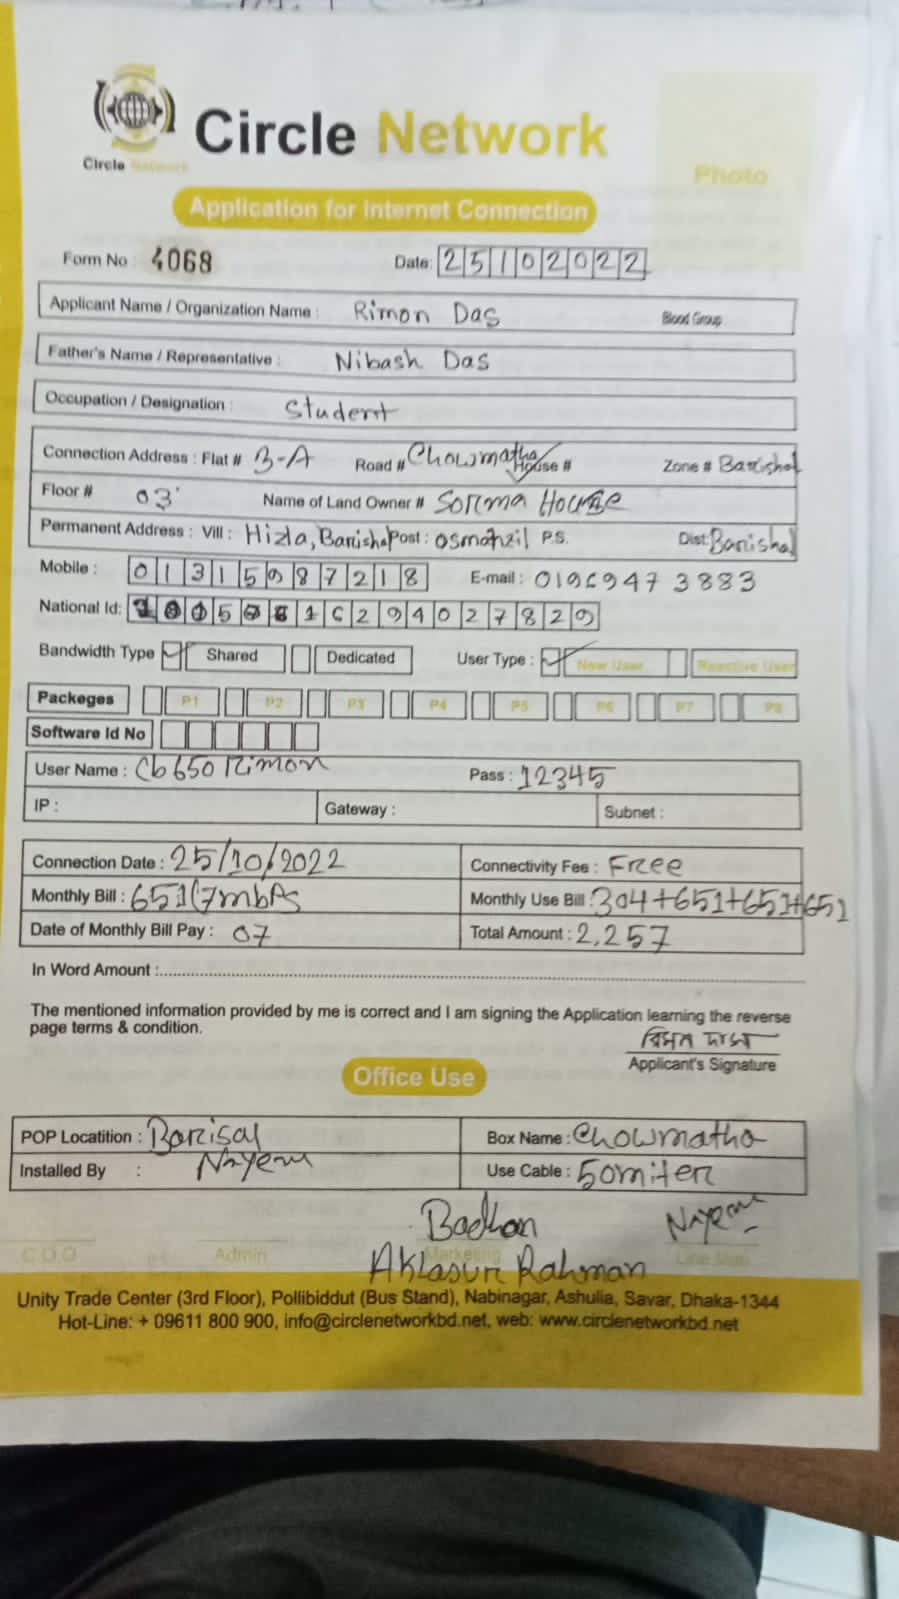 Circle Network
Circle Network
Photo
Application for Internet Connection
Form No 4068 Date: 25102022
Applicant Name / Organization Name : Rimon Das Blood Group
Father's Name / Representative : Nibash Das
Occupation / Designation : Student
Connection Address : Flat # 3-A Road # Chowmatha House # Zone # Barishal
Floor # 03 Name of Land Owner # Sorma House
Permanent Address : Vill : Hizla, Barishal Post : P.S. Dist: Barishal
Mobile : 01315987218 E-mail : 01969473883
National Id:
Bandwidth Type Shared Dedicated User Type : New User Reactive User
Packeges P1 P2 P3 P4 P5 P6 P7 P8
Software Id No
User Name : Cb650Rimon Pass : 12345
IP : Gateway : Subnet :
Connection Date : 25/10/2022 Connectivity Fee : Free
Monthly Bill : 651(7mbps Monthly Use Bill : 304+651+651+651
Date of Monthly Bill Pay : 07 Total Amount : 2,257
In Word Amount :
The mentioned information provided by me is correct and I am signing the Application learning the reverse
page terms & condition.
রিমন দাস
Applicant's Signature
Office Use
POP Locatition : Barisal Box Name : Chowmatha
Installed By : Nayem Use Cable : 50miter
Badhan Nayem
C.O.O Admin Marketing Line Man
Aklasur Rahman
Unity Trade Center (3rd Floor), Pollibiddut (Bus Stand), Nabinagar, Ashulia, Savar, Dhaka-1344
Hot-Line: + 09611 800 900, info@circlenetworkbd.net, web: www.circlenetworkbd.net